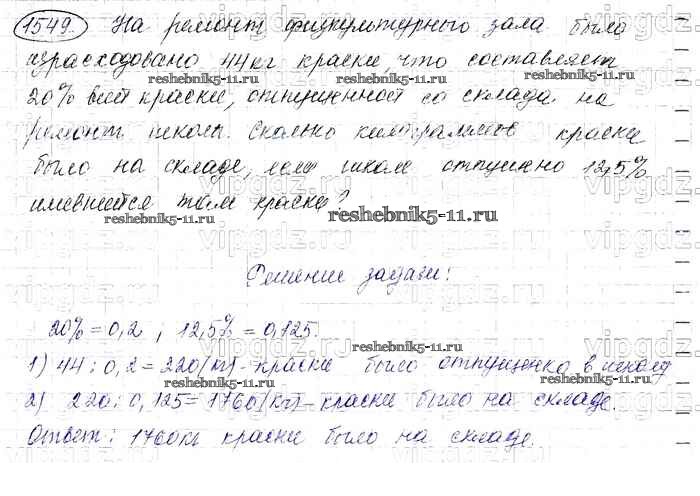 1549. На ремонт физкультурного зала было
израсходовано 44 кг краски, что составляет
reshebnik5-11.ru
reshebnik5-11.ru
20% всей краски, отпущенной со склада на
ремонт школы. Сколько килограммов краски
было на складе, если школе отпущено 12,5%
имевшейся там краски?
reshebnik5-11.ru
reshebnik5-11.ru
Решение задачи:
20% = 0,2 , 12,5% = 0,125.
1) 44 : 0,2 = 220 (кг) - краски было отпущенно в школу
reshebnik5-11.ru
reshebnik5-11.ru
2) 220 : 0,125 = 1760 (кг) - краски было на складе.
Ответ: 1760 кг краски было на складе.
vipgdz.ru